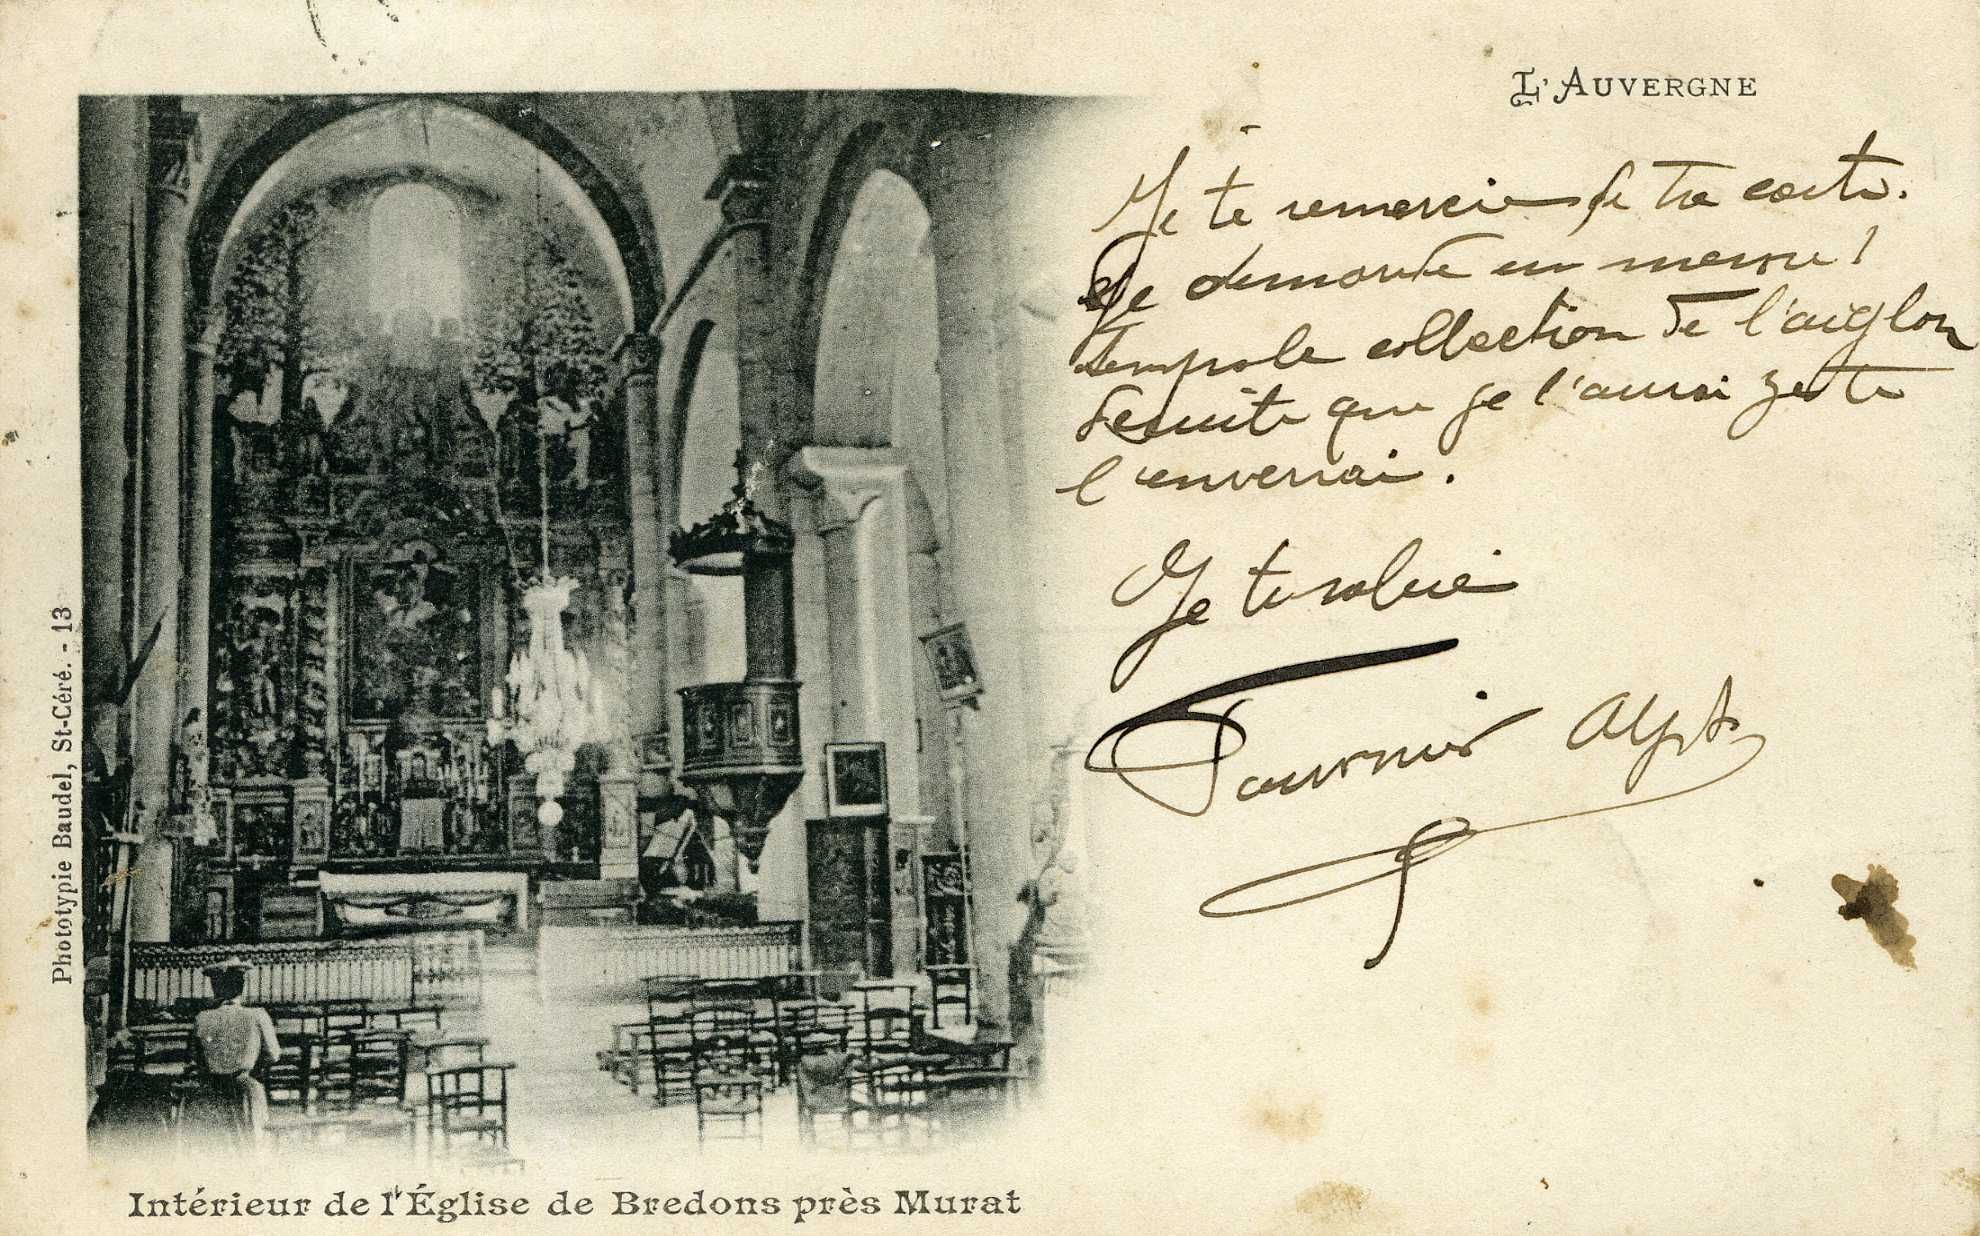 L'AUVERGNE
Je te remercie de ta carte.
Je demande en meme
temps la collection de l'aiglon
de suite que je l'aurai je te
l'enverrai.
Je te salue
Fournier
Phototypie Baudel, St-Céré. - 13
Intérieur de l'Église de Bredons près Murat